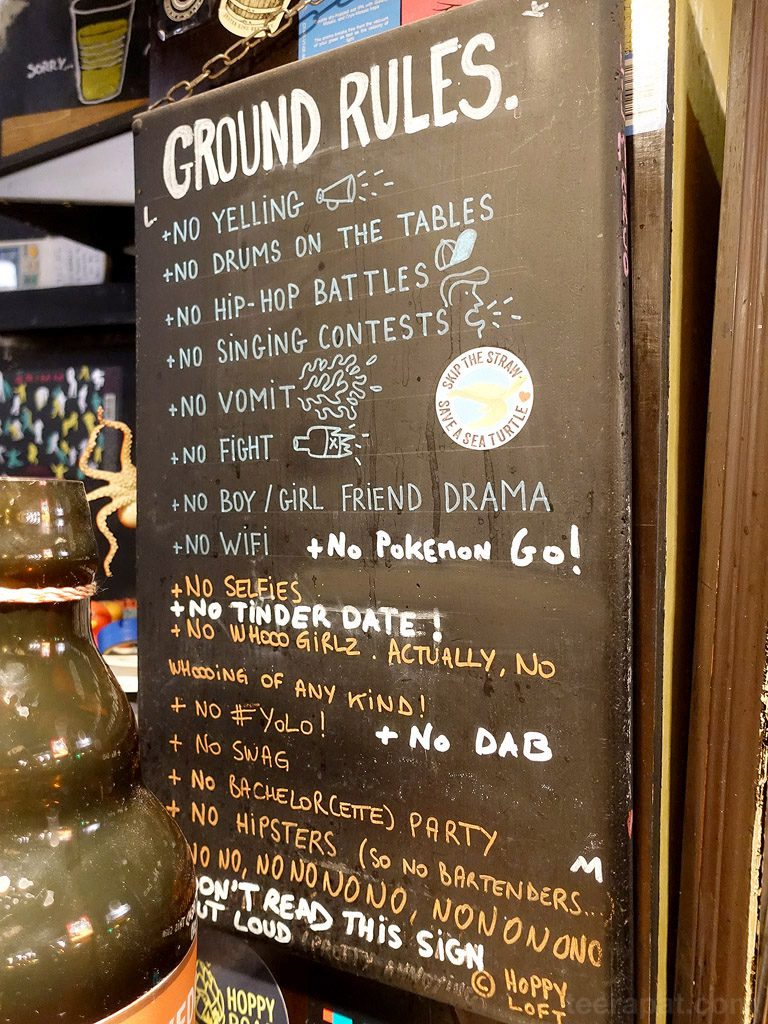 SORRY...
GROUND RULES.
+NO YELLING
+NO DRUMS ON THE TABLES
+NO HIP-HOP BATTLES
+NO SINGING CONTESTS
+NO VOMIT
SKIP THE STRAW
SAVE A SEA TURTLE
+NO FIGHT
+NO BOY/GIRL FRIEND DRAMA
+NO WIFI +No POKEMON GO!
+NO SELFIES
+NO TINDER DATE!
+NO WHOOO GIRLZ. ACTUALLY, NO
WHOOOING OF ANY KIND!
+ NO #YOLO! + No DAB
+ NO SWAG
+ NO BACHELOR(ETTE) PARTY
+ NO HIPSTERS (SO NO BARTENDERS...)
NO NO, NO NO NO NO NO, NO NO NO NO NO
DON'T READ THIS SIGN
OUT LOUD (PRETTY ANNOYING
© HOPPY
LOFT
HOPPY
teerapat.com